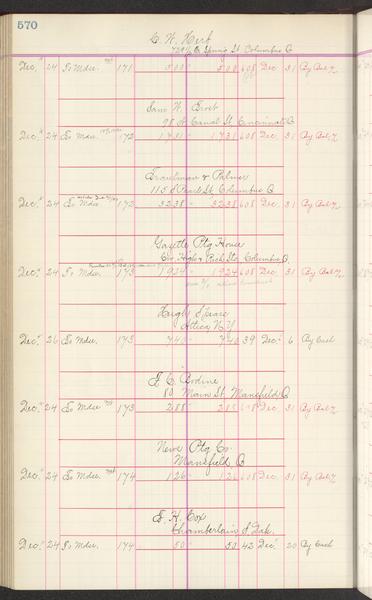 570
C. W. Herf
729½ So Spring St Columbus O
Dec. 24 To Mdse. 171 508 508 608 Dec 31 By Bal.
Sam W. Trost
98 W Canal St Cincinnati O
Dec. 24 To Mdse 172 1731 1731 608 Dec 31 By Bal.
Troutman & Palmer
115 S Pearl St, Columbus O
Dec. 24 To Mdse 172 3238 3238 608 Dec. 31 By Bal.
Gazette Ptg House
Cor High & Rich Sts Columbus O.
Dec. 24 To Mdse. 173 1924 1924 608 Dec. 31 By Bal.
Hugh
Attica N.Y.
Dec. 26 To Mdse. 175 740 740 39 Dec. 6 By Cash
E C Bodine
80 Main St, Mansfield O
Dec. 24 To Mdse 173 288 288 608 Dec 31 By Bal.
News Ptg Co.
Mansfield O
Dec. 24 To Mdse. 174 126 126 608 Dec 31 By Bal.
E. H. Cox
Chamberlain S Dak.
Dec. 24 To Mdse. 174 50 50 42 Dec. 20 By Cash